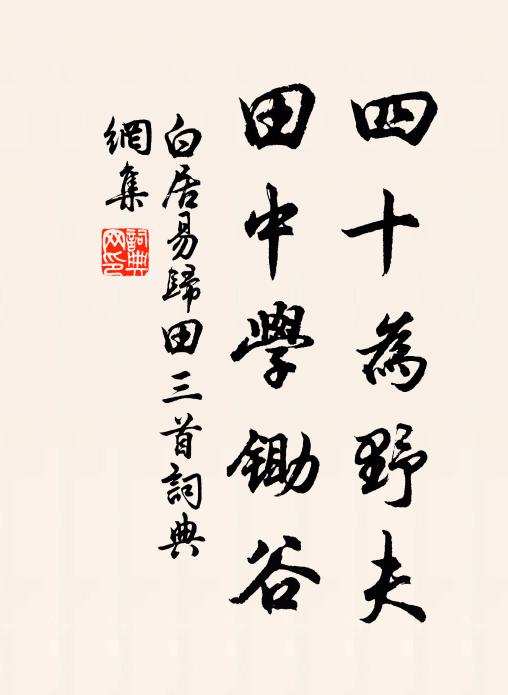 四十為野夫
田中學鋤谷
白居易歸田三首詞典
網集
詞典
网印